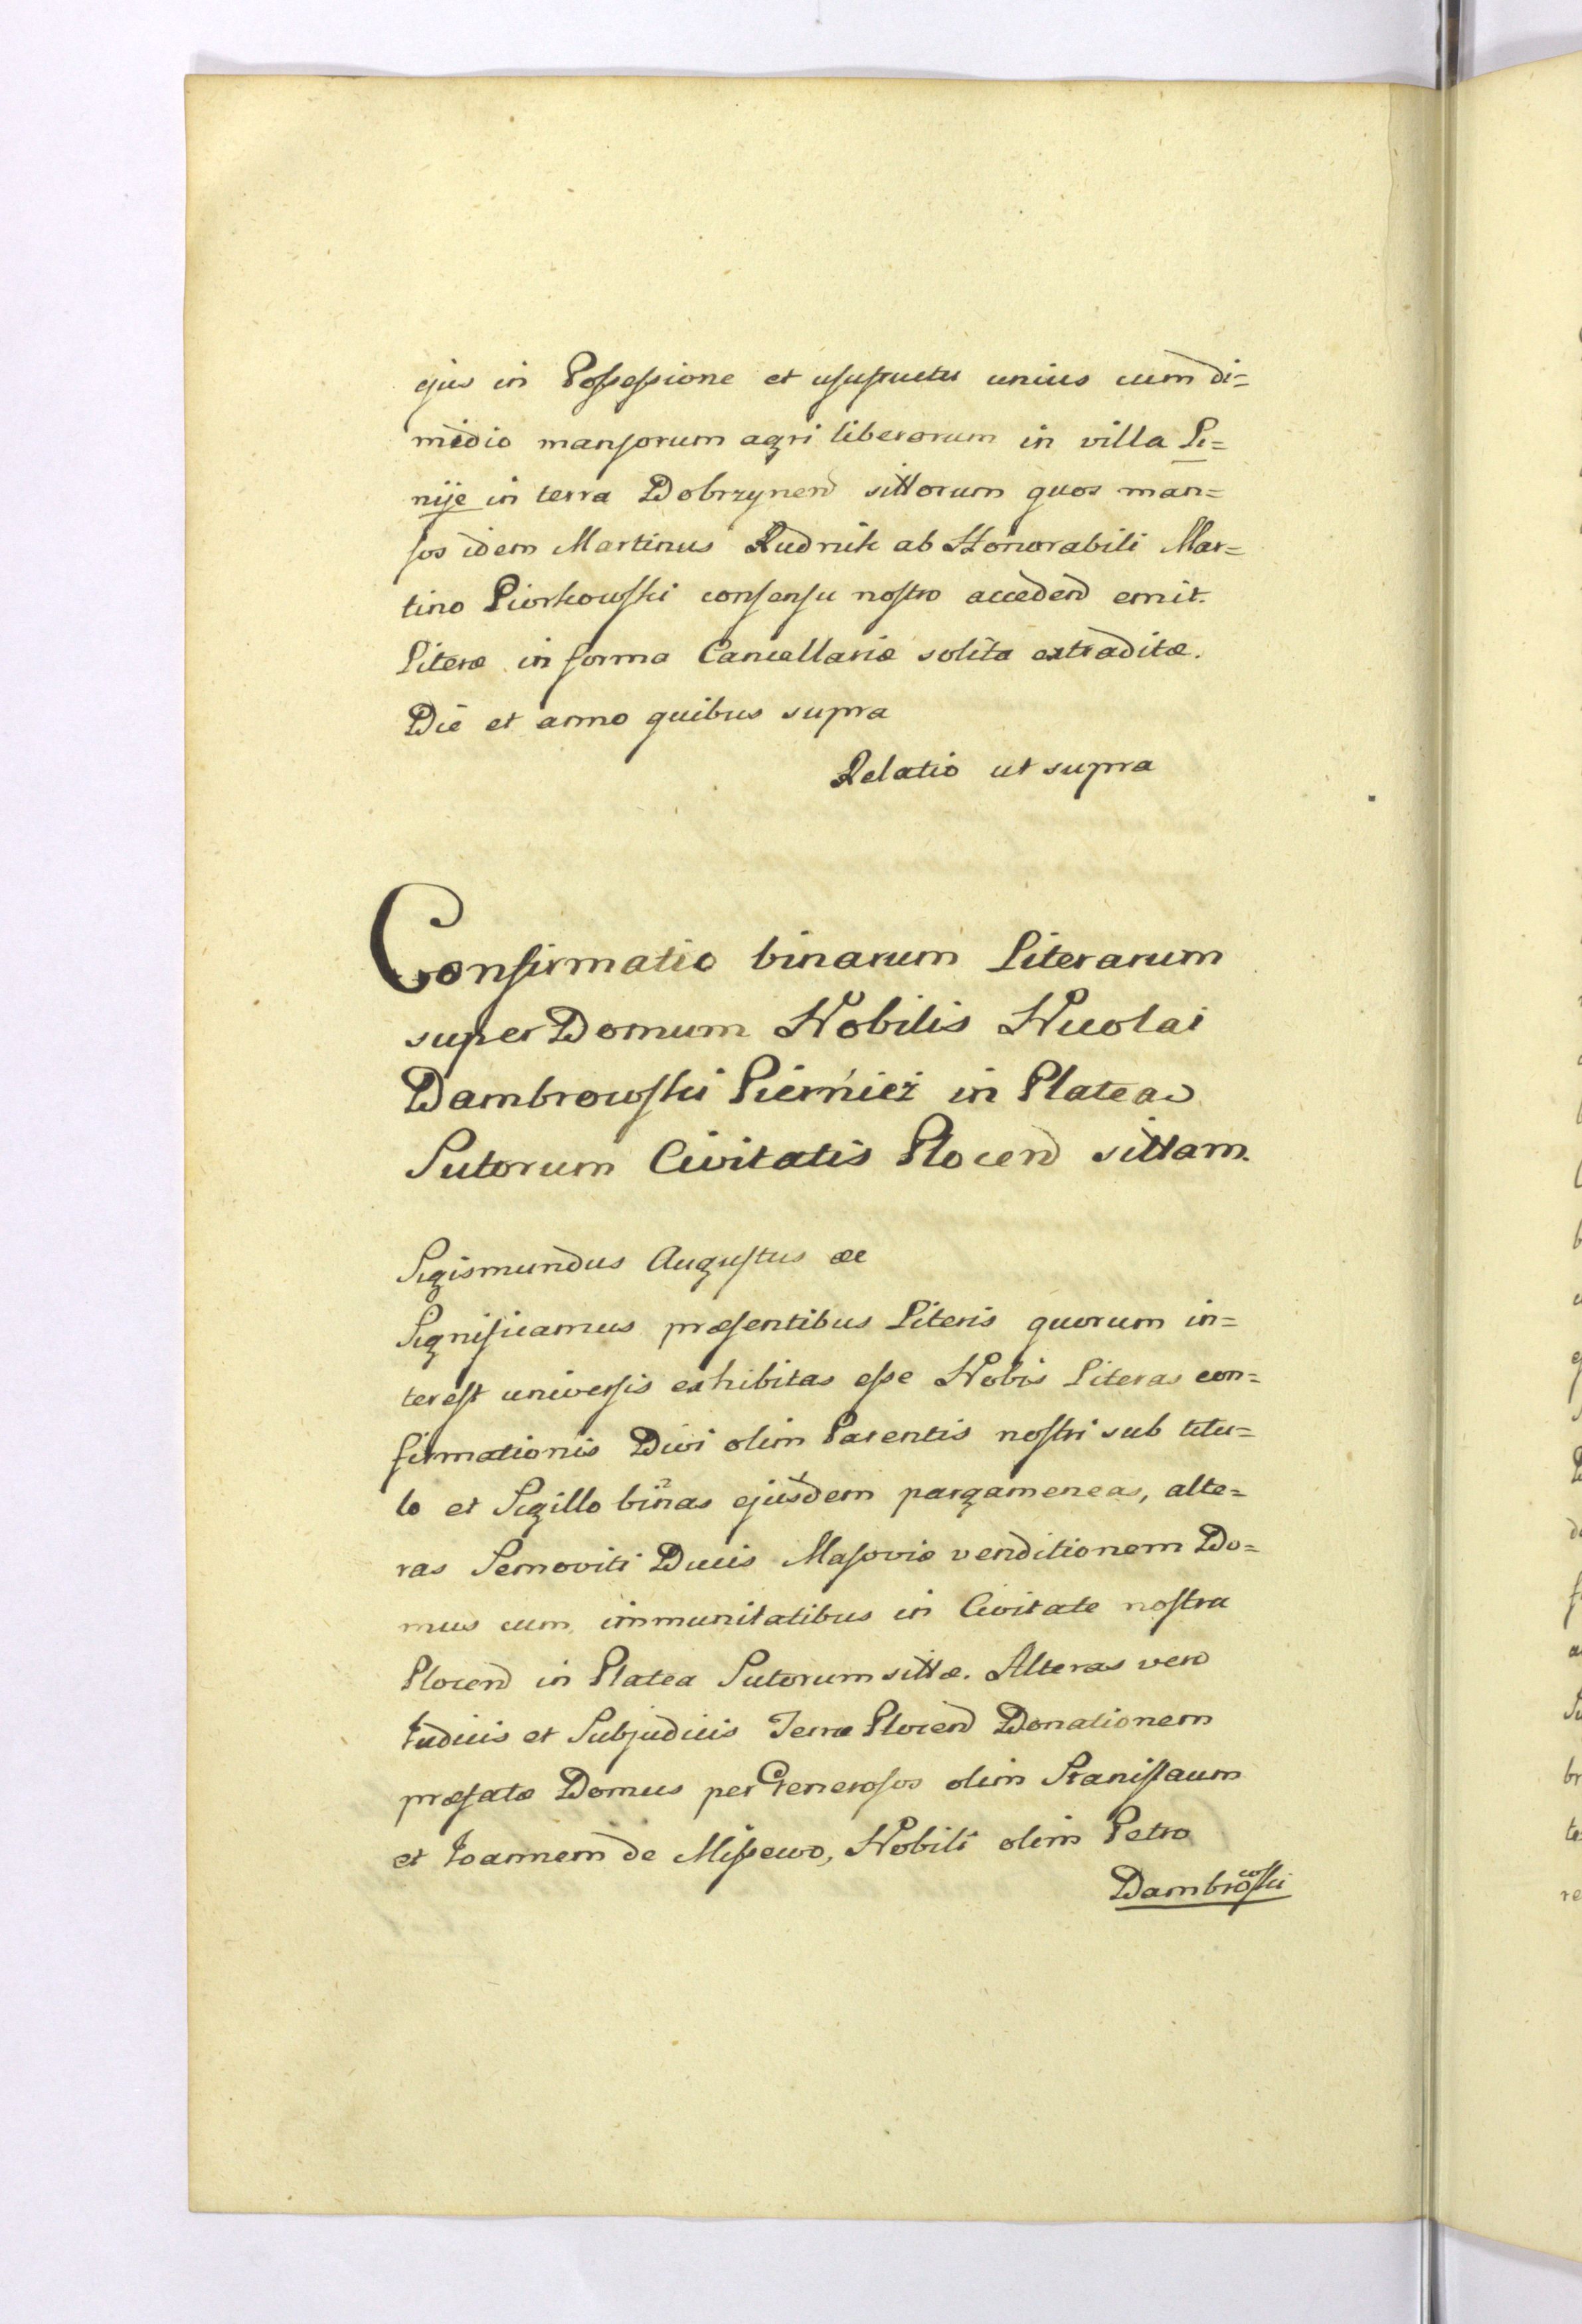 ejus in Possessione et usufructu unius cum di=
midio mansorum agri liberorum in villa Li=
nije in terra Dobrzynen sittorum quos man=
sos idem Martinus Rudnik ab Honorabili Mar=
tino Piorkowski consensu nostro acceden emit.
Literæ in forma Cancellariæ solita extraditæ.
Die et anno quibus supra
Relatio ut supra
Confirmatio binarum Literarum
super Domum Nobilis Nicolai
Dambrowski in Platea
Sutorum Civitatis Plocen sittam.
Sigismundus Augustus &c
Significamus præsentibus Literis quorum in=
terest universis exhibitas esse Nobis Literas con=
firmationis Divi olim Parentis nostri sub titu=
lo et Sigillo binas ejusdem pargameneas, alte=
ras Semoviti Ducis Masoviæ venditionem Do=
mus cum immunitatibus in Civitate nostra
Plocen in Platea Sutorum sittæ. Alteras vero
Iudicis et Subjudicis Terræ Plocen Donationem
præfatæ Domus per Generosos olim Stanislaum
et Ioannem de Missewo, Nobili olim Petro
Dambrowski